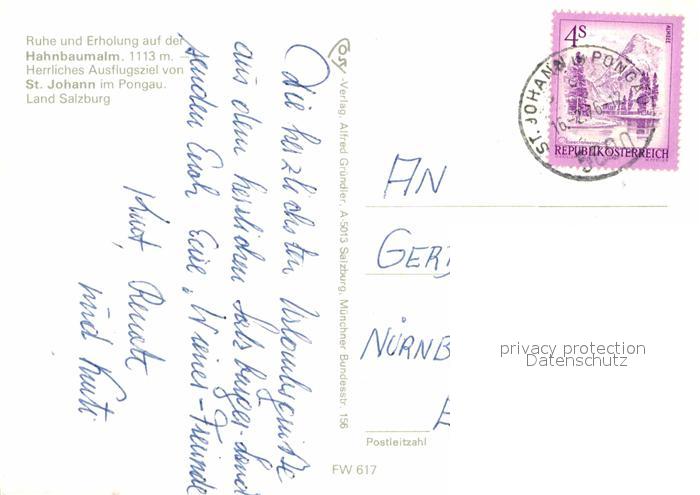 Ruhe und Erholung auf der
Hahnbaumalm. 1113 m. –
Herrliches Ausflugsziel von
St. Johann im Pongau.
Land Salzburg
Die herzlichsten Urlaubsgrüße
aus dem herrlichen Salzburger-Land
senden Euch Eure "Wiener-Freunde
Kurt, Renate
und Kurti
Cosy -Verlag, Alfred Gründler, A-5013 Salzburg, Münchner Bundesstr. 156
4S
ALMSEE
REPUBLIK ÖSTERREICH
ST. JOHANN IM PONGAU
5600
AN
GER
NÜRNB
privacy protection
Datenschutz
Postleitzahl
FW 617